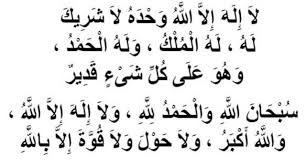 لاَ إِلَهَ إِلاَّ اللَّهُ وَحْدَهُ لاَ شَرِيكَ
لَهُ ، لَهُ الْمُلْكُ ، وَلَهُ الْحَمْدُ ،
وَهُوَ عَلَى كُلِّ شَىْءٍ قَدِيرٌ
سُبْحَانَ اللَّهِ وَالْحَمْدُ لِلَّهِ ، وَلاَ إِلَهَ إِلاَّ اللَّهُ ،
وَاللَّهُ أَكْبَرُ ، وَلاَ حَوْلَ وَلاَ قُوَّةَ إِلاَّ بِاللَّهِ